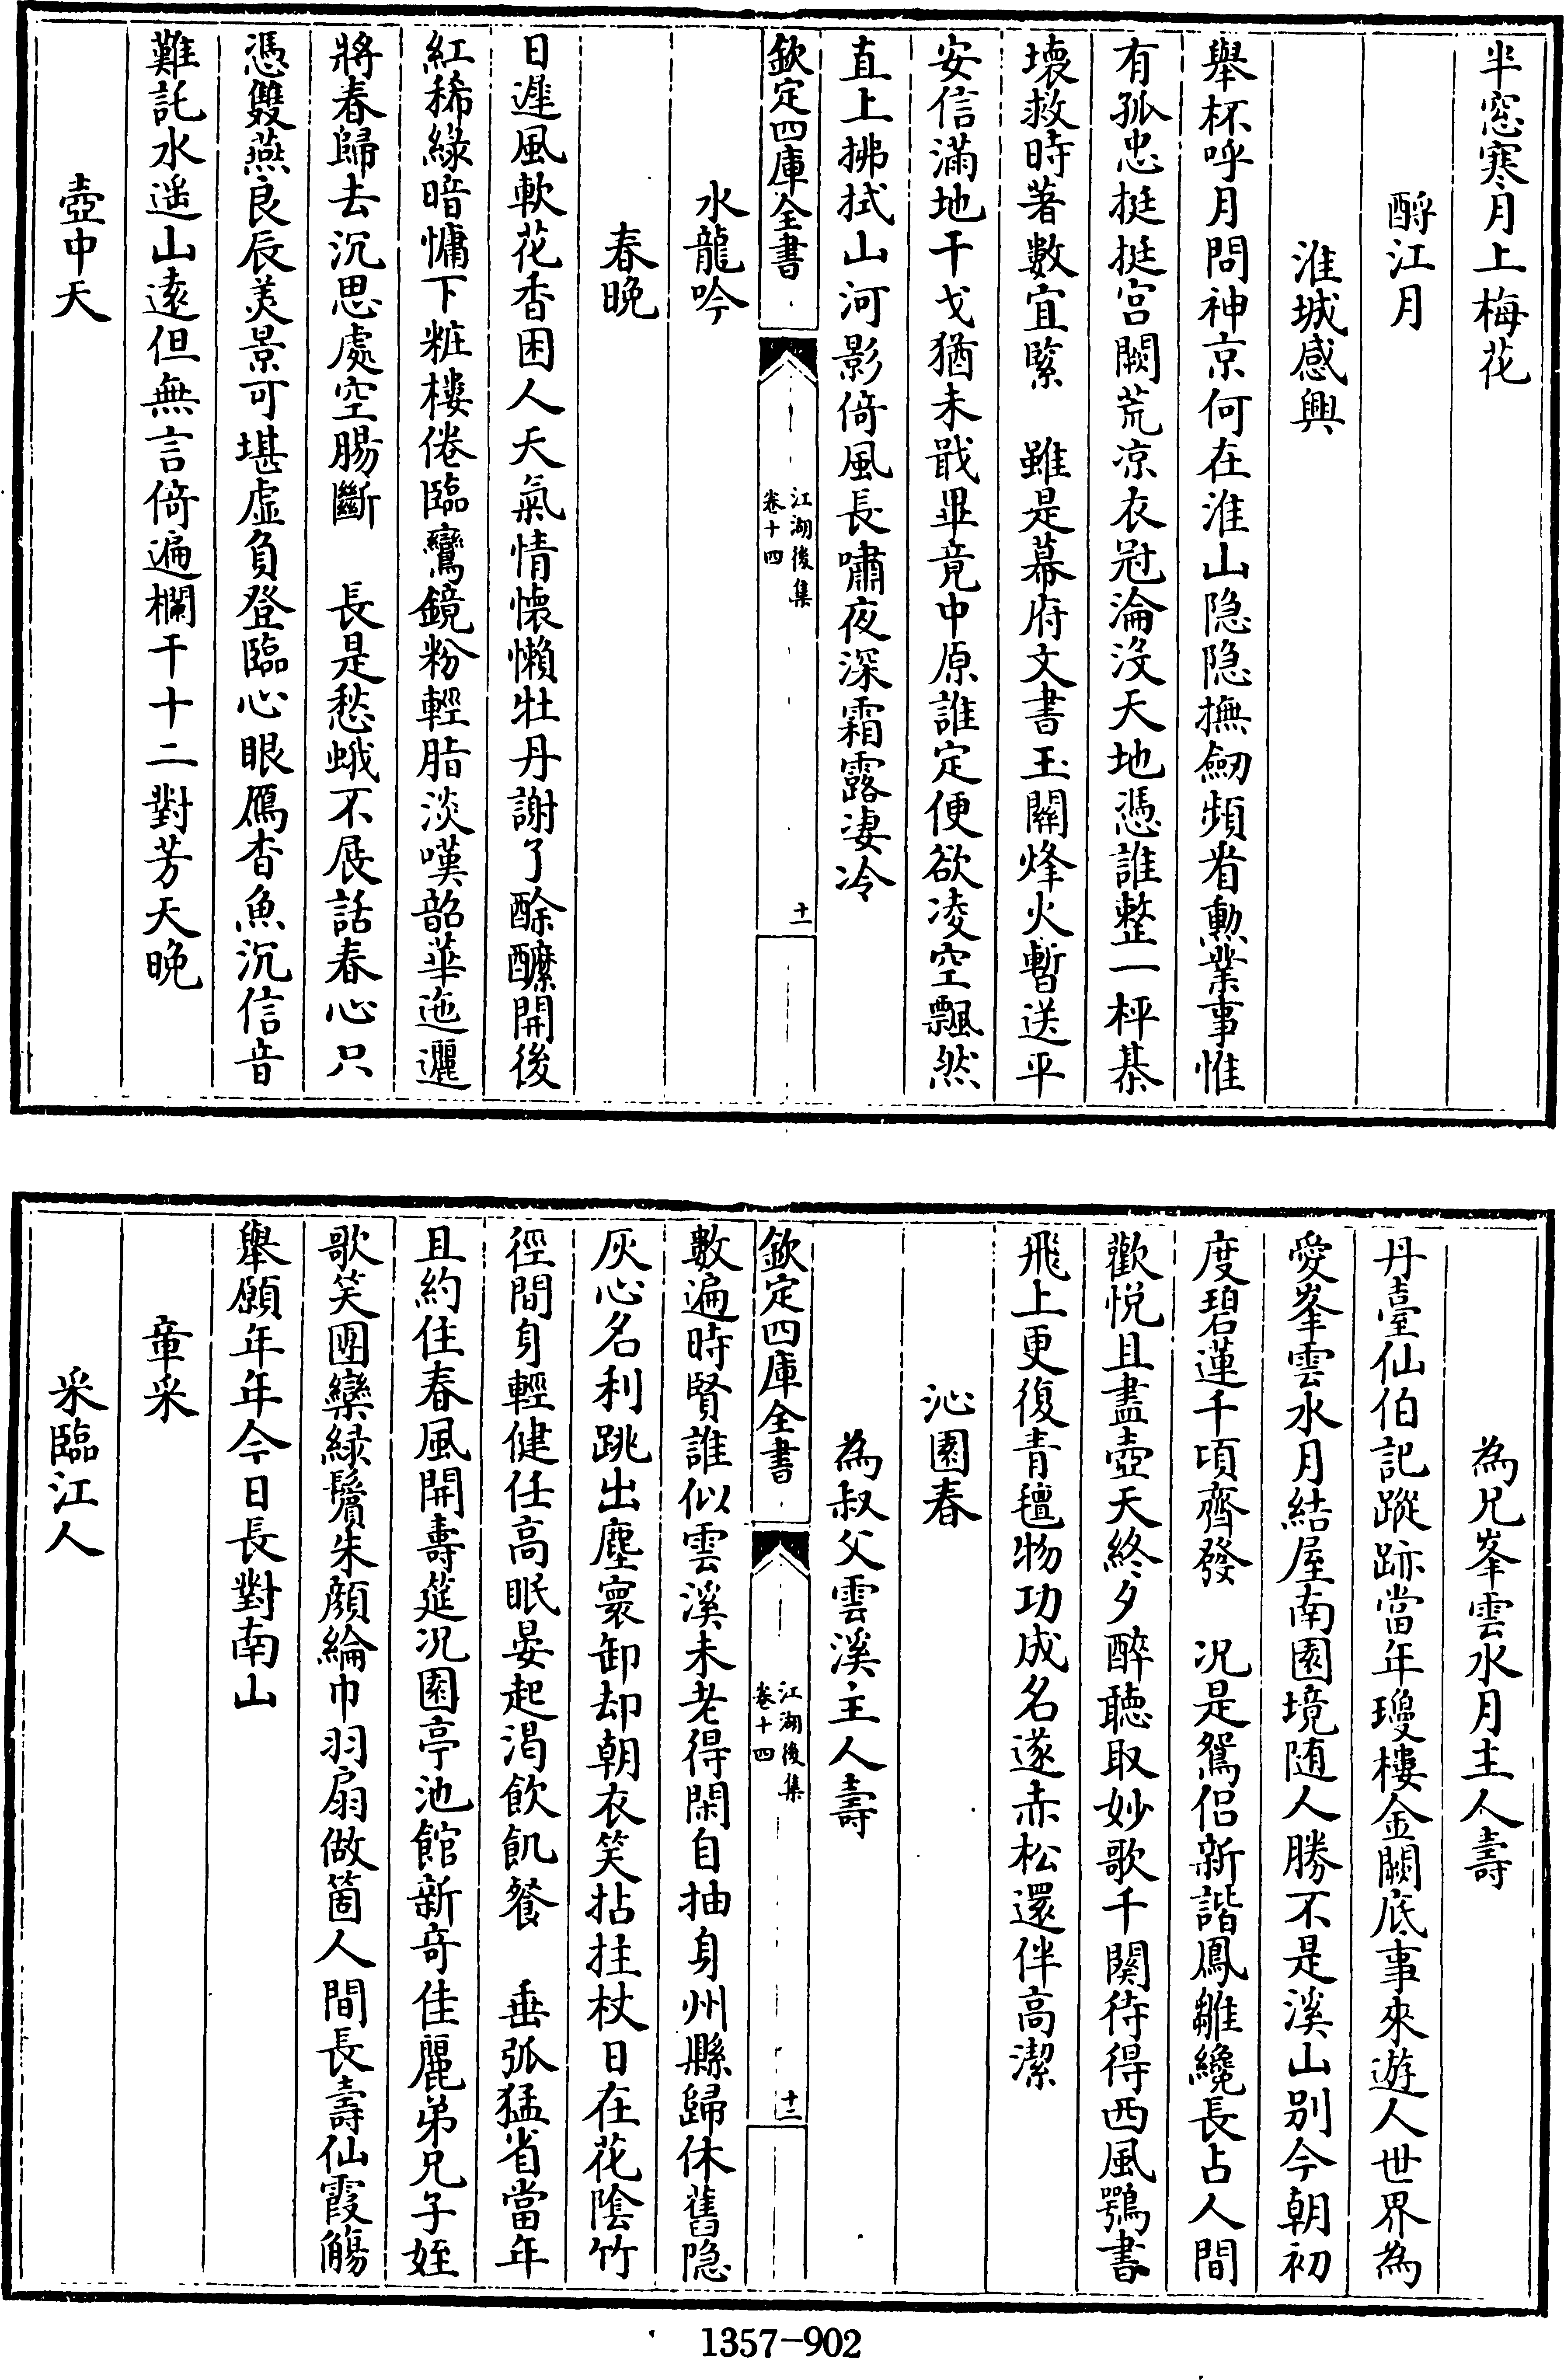 半窓寒月上梅花
酹江月
淮城感興
舉杯呼月問神京何在淮山隠隠撫劒頻看勲業事惟
有孤忠挺挺宫闕荒凉衣冠淪没天地憑誰整一枰棊
壞救時著數宜緊　雖是幕府文書玉關烽火暫送平
安信滿地干戈猶未戢畢竟中原誰定便欲凌空飄然
直上拂拭山河影倚風長嘯夜深霜露凄冷
欽定四庫全書
江湖後集
卷十四
十一
水龍吟
春晚
日遲風軟花香困人天氣情懷懶牡丹謝了酴醾開後
紅稀綠暗慵下粧樓倦臨鸞鏡粉輕脂淡嘆韶華迤邐
將春歸去沉思處空腸斷　長是愁蛾不展話春心只
憑雙燕良辰美景可堪虚負登臨心眼鴈杳魚沉信音
難託水遥山逺但無言倚遍欄干十二對芳天晚
壺中天
為兄峯雲水月主人壽
丹臺仙伯記蹤跡當年瓊樓金闕底事來遊人世界為
愛峯雲水月結屋南園境随人勝不是溪山别今朝初
度碧蓮千頃齊發　况是鴛侣新諧鳳雛纔長占人間
歡悦且盡壺天終夕醉聽取妙歌千闋待得西風鶚書
飛上更復青氊物功成名遂赤松還伴高潔
沁園春
為叔父雲溪主人壽
欽定四庫全書
江湖後集
卷十四
十二
數遍時賢誰似雲溪未老得閑自抽身州縣歸休舊隠
灰心名利跳出塵寰卸却朝衣笑拈拄杖日在花陰竹
徑間身輕健任高眠晏起渴飲飢餐　垂弧猛省當年
且約住春風開壽筵况園亭池館新奇佳麗弟兄子姪
歌笑團欒緑鬢朱顔綸巾羽扇做箇人間長壽仙霞觴
舉願年年今日長對南山
章采
采臨江人
1357-902